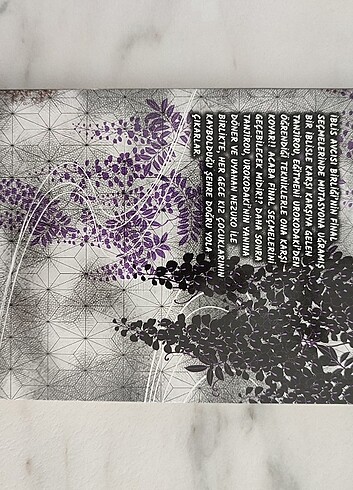 İBLİS AVCISI BİRLİĞİ'NİN FİNAL
SEÇMELERİNDE MUTASYONA UĞRAMIŞ
BİR İBLİSLE KARŞI KARŞIYA GELEN
TANJİROU, EĞİTMENİ UROKODAKİ'DEN
ÖĞRENDİĞİ TEKNİKLERLE ONA KARŞI
KOYAR!! ACABA FİNAL SEÇMELERİNİ
GEÇEBİLECEK MİDİR!? DAHA SONRA
TANJİROU, UROKODAKİ'NİN YANINA
DÖNER VE UYANAN NEZUKO İLE
BİRLİKTE, HER GECE KIZ ÇOCUKLARININ
KAYBOLDUĞU ŞEHRE DOĞRU YOLA
ÇIKARLAR.